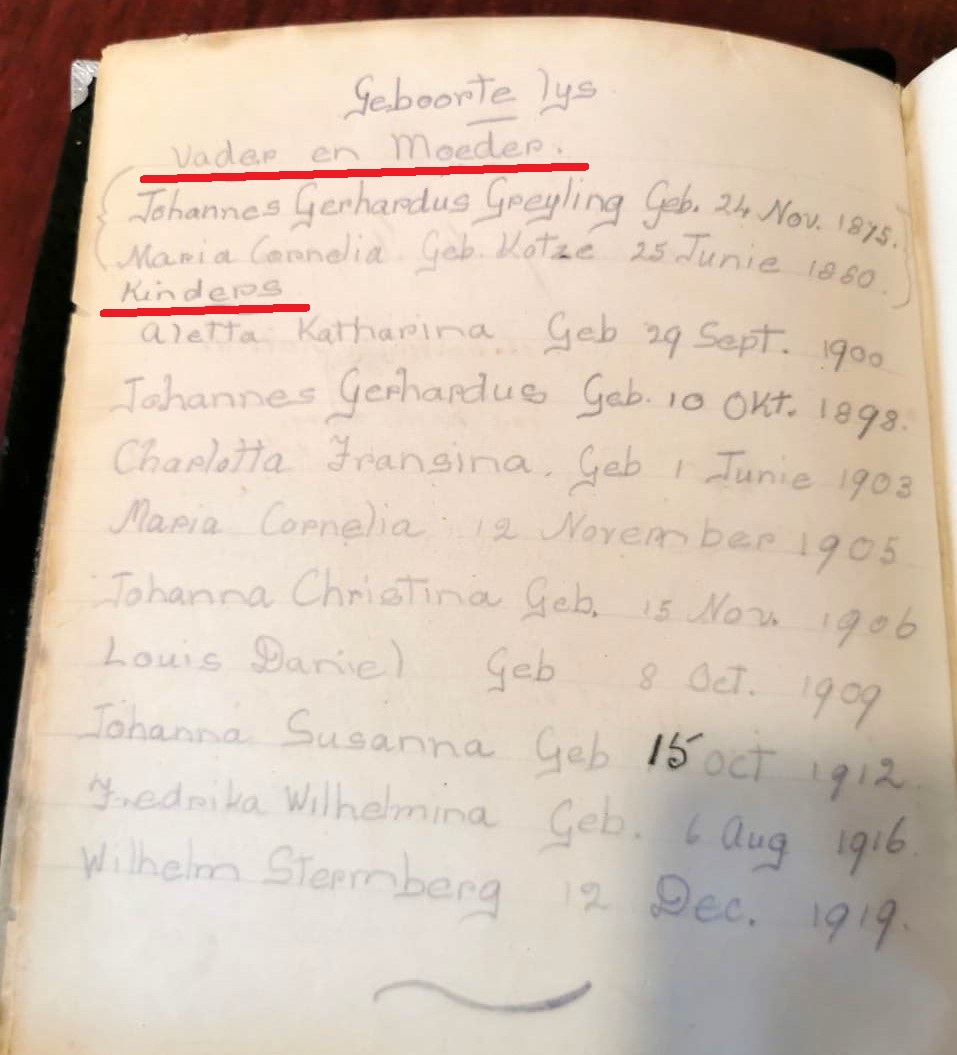 Geboorte lys
Vader en Moeder.
Johannes Gerhardus Greyling Geb. 24 Nov. 1875.
Maria Cornelia Geb. Kotze 25 Junie 1880.
Kinders
Aletta Katharina Geb 29 Sept. 1900
Johannes Gerhardus Geb. 10 Okt. 1898.
Charlotta Fransina. Geb 1 Junie 1903
Maria Cornelia 12 November 1905
Johanna Christina Geb. 15 Nov. 1906
Louis Daniel Geb 8 Oct. 1909
Johanna Susanna Geb 15 Oct 1912
Fredrika Wilhelmina Geb. 6 Aug 1916.
Wilhelm Stermberg 12 Dec. 1919.